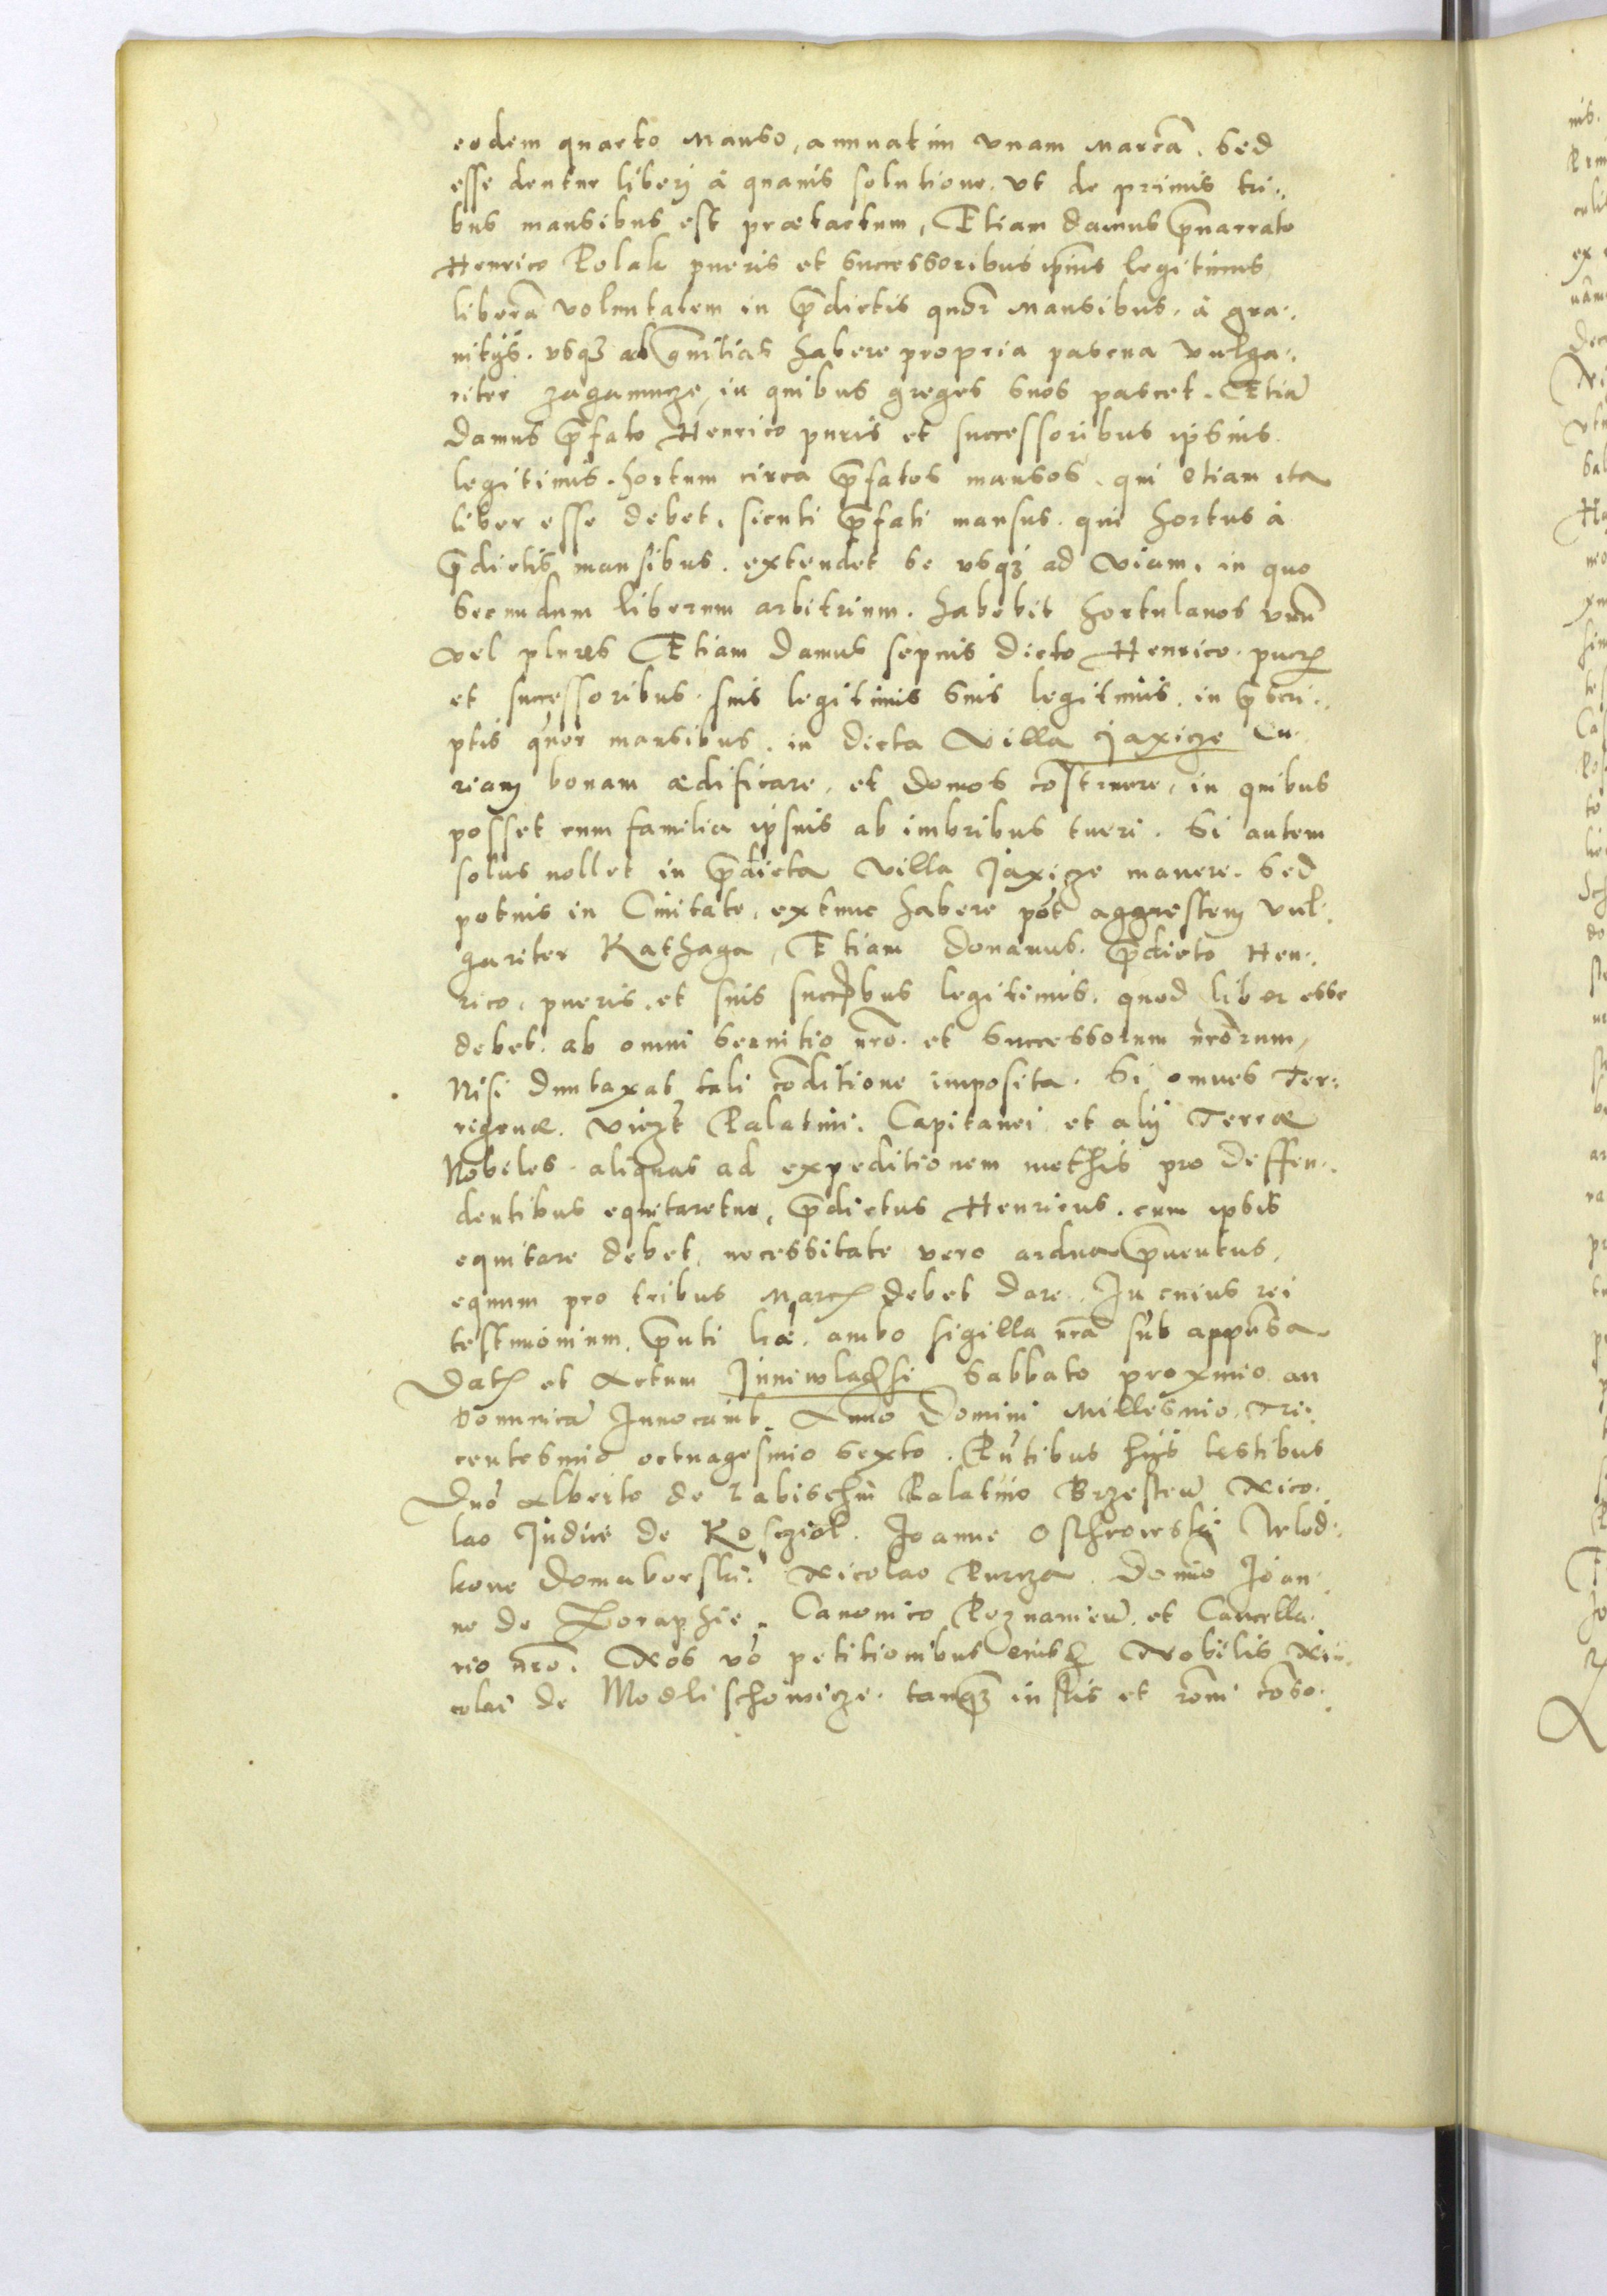 eodem quarto manso, annuatim unam marcã. Sed
esse dentur liberj á quavis solutione. ut de primis tri¬
bus mansibus est prætactum, Etiam damus p̃narrato
Henrico Polak pueris et successoribus ip̃ius legitimis
liberã voluntatem in p̃dictis quõr mansibus. á gra¬
nitijs. usq3 ad g̃nitias habere propria pascua vulga¬
riter zagamncze, in quibus greges suos pascet. Etiã
damus p̃fato Henrico puris et successoribus ipsius
legitimis. hortum circa p̃fatos mansos. qui etiam ita
liber esse debet, sicuti p̃fati mansus. qui hortus á
p̃dictis mansibus. extendet se usq3 ad viam, in quo
secundum liberum arbitrium. habebit hortulanos unũ
vel plures Etiam damus sepius dicto Henrico. puer̨
et successoribus. suis legitimis suis legitimis. in p̃scri¬
ptis q̃uor mansibus. in dicta villa Jaxicze Cu¬
riam bonam ædificare, et domos cõstruere, in quibus
posset cum familia ipsius ab imbribus tueri. Si autem
solus nollet in p̃dicta villa Jaxicze manere. Sed
potuis in Civitate, extunc habere põt aggrestem vul¬
gariter Kathaga, Etiam donamus. p̃dicto Hen¬
rico, pueris, et suis succ̃bus legitimis. quod liber esse
debet. ab omni servitio nrõ. et successorum nrõrum,
Nisi duntaxat tali cõditione imposita. Si omnes Ter¬
rigenæ. videlz̃t Palatini. Capitanei et alij Terræ
Nobiles. aliquas ad expeditionem methis pro deffen¬
dentibus equitaretur, p̃dictus Henricus. cum ipsis
equitare debet, necessitate vero ardua p̃uentus,
equum pro tribus marc̨ debet dare. In cuius rei
testimonium. p̃nti hæ. ambo sigilla nrã sub appẽnsa
Dat̨ et Actum Junivladhsi Sabbato proximo an
dominicã Innocauit. Anno Domini Millesimo, Tri¬
centesimo octuagesimo sexto. P̃ntibus hijs testibus
Dnõ Alberto de Labischin Palatino Brzesten̄ Nico¬
lao Judice de Koscziol. Joanne Osthrowski Wlod¬
kone Domaborski. Nicolao Purcza. Domino Joan¬
ne de Goraphie. Canonico Poznanien̄. et Cancella¬
rio nrõ. Nos vº petitionibus eiusd̨ Nobilis Ni¬
colai de Modlischowicze. tanq̃3 iustis et rõni cõso¬